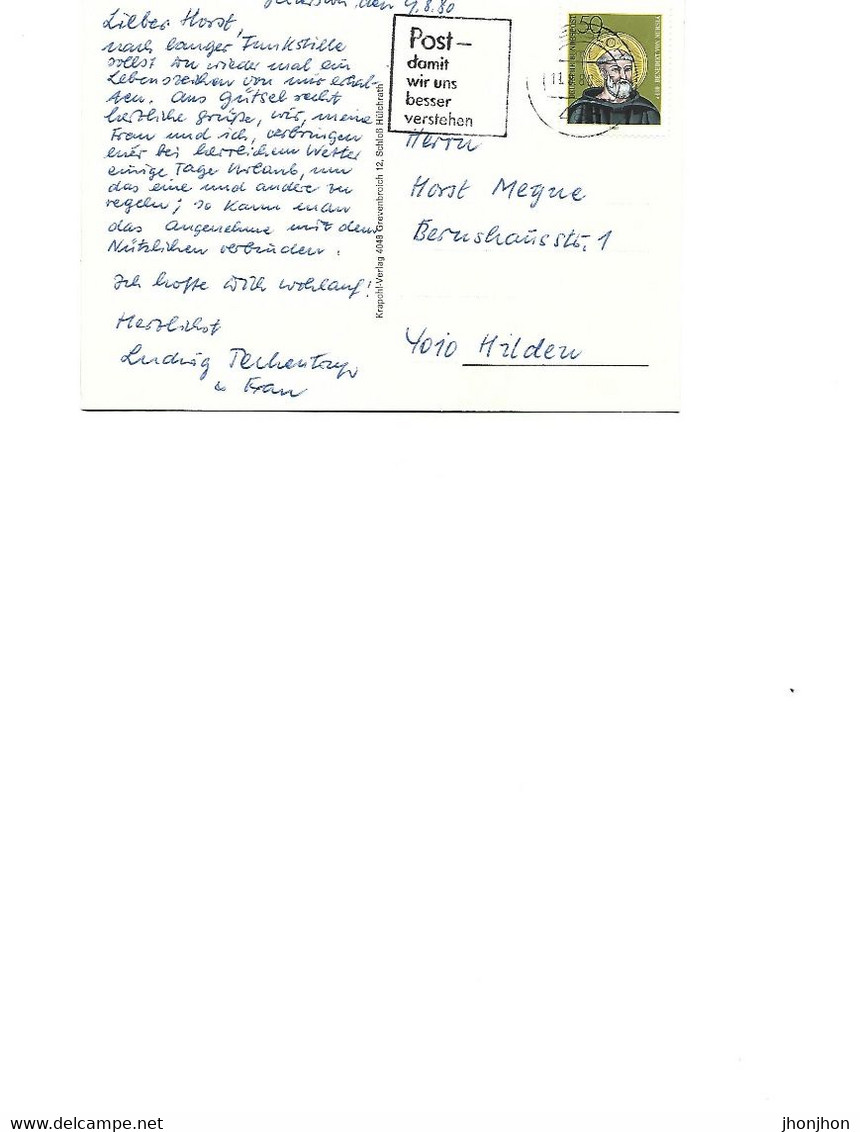 den 9.8.80
Lieber Horst,
nach langer Funkstille
sollst Du wieder mal ein
Lebenszeichen von mir erhal-
ten. Aus Gützel recht
herzliche Grüße, wir, meine
Frau und ich, verbringen
hier bei herrlichem Wetter
einige Tage Urlaub, um
das eine und andere zu
regeln; so kann man
das Angenehme mit dem
Nützlichen verbinden.
Ich hoffe Dich wohlauf!
Herzlichst
Ludwig
u Frau
Krapohl-Verlag 4048 Grevenbroich 12, Schloß Hülchrath
Post –
damit
wir uns
besser
verstehen
50
DEUTSCHE BUNDESPOST
BENEDICT VON NURSIA
Herrn
Horst Megne
Bernshausstr. 1
4010 Hilden
delcampe.net
jhonjhon